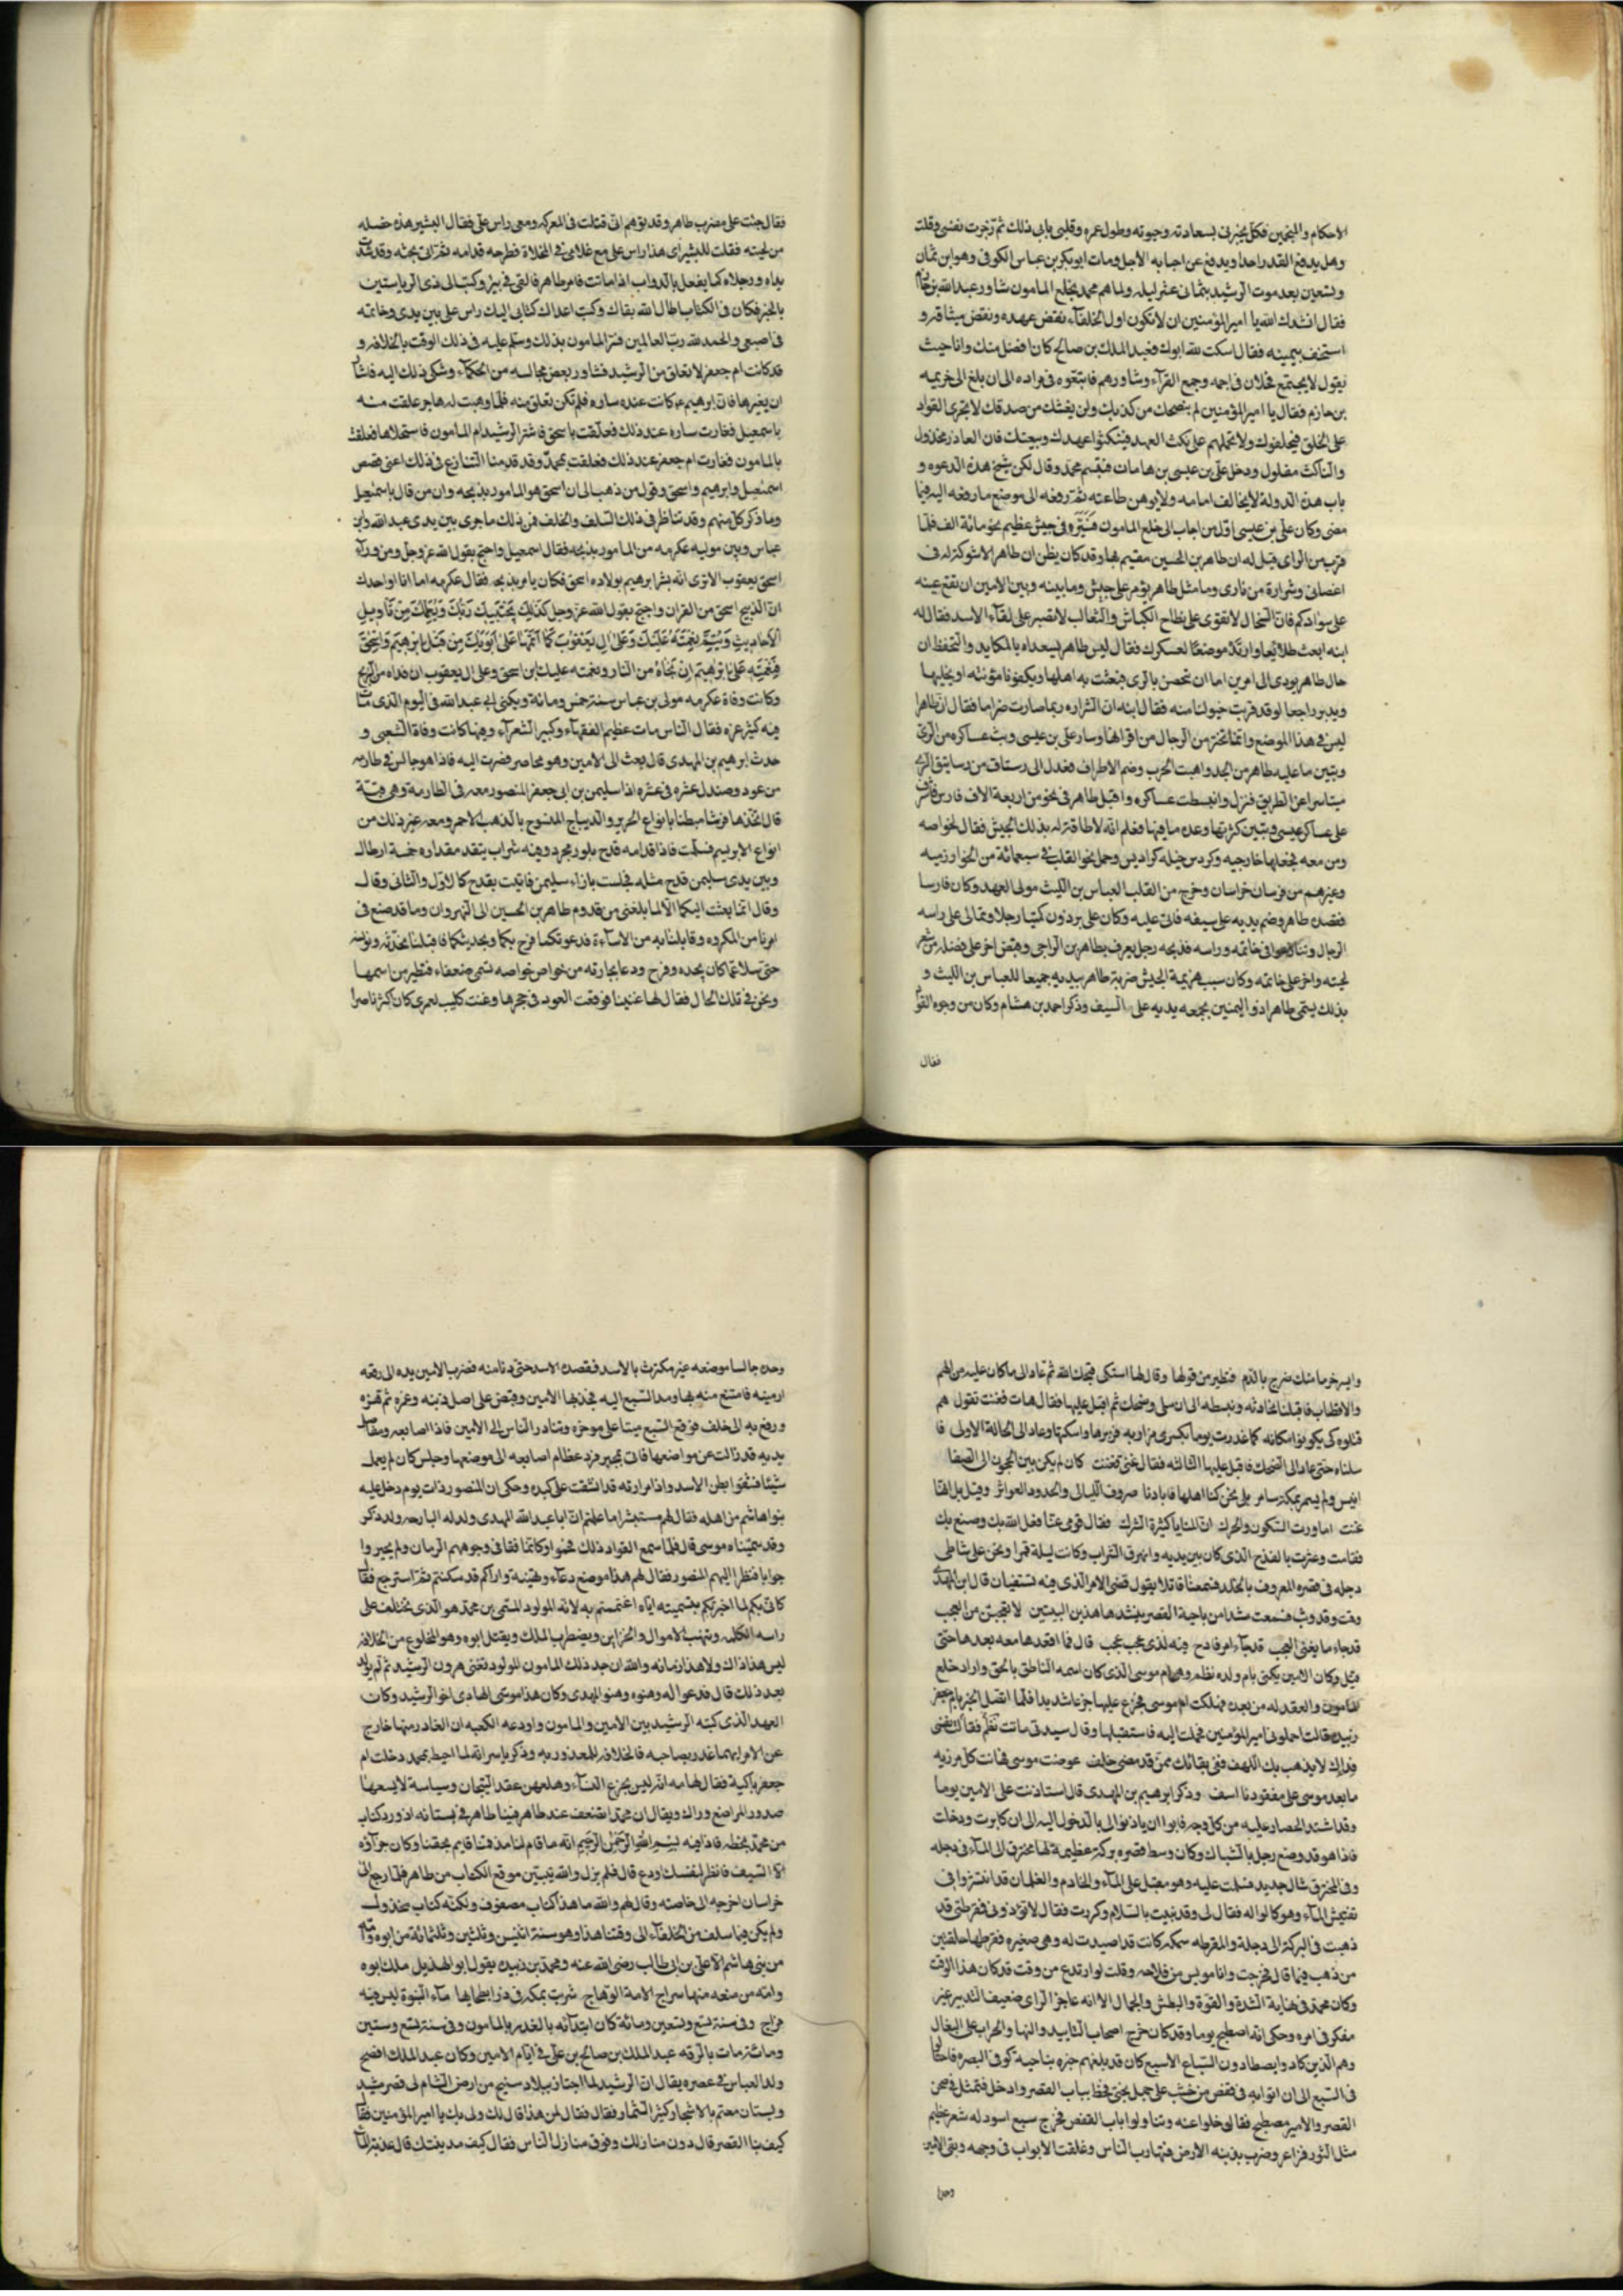 الاحكام والمنجمين فكل يخبرنى بسعادته وحيوته وطول عمره وقلبى يابى ذلك ثم زجرت نفسى وقلت
وهل يدفع القدر احدا ويدفع عن احبابه الاجل ومات ابوبكر بن عباس الكوفى وهو ابن ثمان
وتسعين بعد موت الرشيد بثمانى عشر ليله ولما هم محمد بخلع المامون شاور عبد الله بن خازم
فقال انشدك الله يا امير المؤمنين ان لا تكون اول الخلفآء نقض عهده ونقض ميثاقه و
استخف بيمينه فقال اسكت لله ابوك فعبد الملك بن صالح كان افضل منك رايا حيث
يقول لا يجتمع فحلان فى اجمه وجمع القرآء وشاورهم فاتبعوه فى مراده الى ان بلغ الى خزيمه
بن حازم فقال يا امير المؤمنين لم ينصحك من كذبك ولن يغشك من صدقك لا تجرى القواد
على الخلق فيخلعوك ولا تحملهم على نكث العهد فينكثوا عهدك وبيعتك فان الغادر مخذول
والناكث مفلول ودخل على بن عيسى بن هامان فتبسم محمد وقال لكن شيخ هذه الدعوه و
باب هذه الدوله لا يخالف امامه ولا يوهن طاعته ثم رفعه الى موضع ما رفعه اليه فيما
مضى وكان على بن عيسى اول من اجاب الى خلع المامون فسيره فى جيش عظيم نحو مائة الف فلما
قرب من الراى قيل له ان طاهر بن الحسين مقيم بها وقد كان يظن ان طاهر الا شوكة له ف
اغصانى وشرارة من نارى وما مثل طاهر يؤمر على جيش وما بينه وبين الامين ان تقع عينه
على سوادكم فان السخال لا تقوى على نطاح الكباش والثعالب لا تصبر على لقآء الاسد فقال له
ابنه ابعث طلائعا وارتد موضعا لعسكرك فقال ليس طاهر يستعد له بالمكايد والتحفظ ان
حال طاهر يودى الى امرين اما ان تحصن بالرى فبعثت به اهلها ويكفونا مؤنته او يخليها
ويدبر راجعا لو قد قربت خيولنا منه فقال ابنه ان الشراره ربما صارت ضراما فقال ان طاهرا
ليس فى هذا الموضع وانما تحترس الرجال من اقرانها وسار على بن عيسى وبث عساكره من الرى
وتبين ما عليه طاهر من الجد واهبت الحرب وضم الاطراف فعدل الى رستاق من رساتيق الرى
متياسرا عن الطريق فنزل وانبسطت عساكره واقبل طاهر فى نحو من اربعة الاف فارس فاشرف
على عساكر عيسى وتبين كثرتها وعدة ما فيها فعلم انه لا طاقة له بذلك الجيش فقال لخواصه
ومن معه نجعلها خارجيه وكردس خيله كراديس وحمل نحو القلب فى سبعمائة من الخوارزميه
وغيرهم من فرسان خراسان وخرج من القلب العباس بن الليث مولى العهد وكان فارسا
فقصده طاهر وضم يديه على سيفه فاتى عليه وكان على برذون كميتا رجلا وتمالى على راسه
الرجال وتنازعوا فى خاتمه وراسه فذبحه رجل يعرف بطاهر بن الراجى وقبض اخر على فضله من شعر
لحيته واخر على خاتمه وكان سبب هزيمة الجيش ضربة طاهر بيديه جميعا للعباس بن الليث و
بذلك يسمى طاهرا ذو اليمنين بجمعه يديه على السيف وذكر احمد بن هشام وكان من وجوه القواد
فقال
فقال جئت على مضرب طاهر وقد توهم انى قتلت فى المعركه ومعى راس على فقال البشير هذه خصله
من لحيته فقلت للبشير اى هذا راس على مع غلامى فى المخلاة فطرحه قدامه ثم اتى بجثه وقد شد
يداه ورجلاه كما يفعل بالدواب اذا ماتت فامر طاهر فالقى فى بير وكتب الى ذى الرياستين
بالخبر فكان فى الكتاب اطال الله بقاك وكبت اعداك كتابى اليك وراس على بين يدى وخاتمه
فى اصبعى والحمد لله رب العالمين فسر المامون بذلك وسلم عليه فى ذلك الوقت بالخلافه و
قد كانت ام جعفر لا تعلق من الرشيد فشاور بعض مجالسه من الحكمآء وشكى ذلك اليه فاشار
ان يغيرها فان ابرهيم ع كانت عنده ساره فلم تكن تعلق منه فلما وهبت له هاجر علقت منه
باسمعيل فغارت ساره عند ذلك فعلقت باسحق فاشترا الرشيد ام المامون فاستخلاها فعلقت
بالمامون فغارت ام جعفر عند ذلك فعلقت بمحمد وقد قدمنا التنازع فى ذلك اعنى قصص
اسمعيل وابرهيم واسحق وقول من ذهب الى ان اسحق هو المامور بذبحه وان من قال باسمعيل
وما ذكر كل منهم وقد تناظر فى ذلك السلف والخلف فمن ذلك ما جرى بين يدى عبد الله وابن
عباس وبين موليه عكرمه من المامور بذبحه فقال اسمعيل واحتج بقول الله عز وجل ومن ورآء
اسحق يعقوب الا ترى انه بشر ابرهيم بولاده اسحق فكان يامر بذبحه فقال عكرمه اما انا اوجدك
ان الذبيح اسحق من القران واحتج بقول الله عز وجل كَذلِكَ يَجْتَبِيكَ رَبُّكَ وَيُعَلِّمُكَ مِنْ تَاْويلِ
الاَحاديثِ وَيُتِمُّ نِعْمَتَهُ عَلَيْكَ وَعَلى الِ يَعْقُوبَ كَما اَتَمَّها عَلى اَبَوَيْكَ مِنْ قَبْلُ اِبْرهِيمَ وَاِسْحقَ
فنعمته على ابرهيم ان نجاه من النار ونعمته عليك بن اسحق وعلى ال يعقوب ان فداه من الذبح
وكانت وفاة عكرمه مولى بن عباس سنة خمس ومائة ويكنى ابى عبد الله فى اليوم الذى مات
فيه كثير عزه فقال الناس مات عظيم الفقهآء وكبير الشعرآء وفيها كانت وفاة الشعبى و
حدث ابرهيم بن المهدى قال بعث الى الامين وهو محاصر فصرت اليه فاذا هو جالس فى طارمه
من عود وصندل عشره فى عشره اذا سليمن بن ابى جعفر المنصور معه فى الطارمة وهى قبة
قال اتخذها فرشا مبطنا بانواع الحرير والديباج المنسوج بالذهب الاحمر ومعه غير ذلك من
انواع الابريسم فسلمت فاذا قدامه قدح بلور مجرد وفيه شراب ينقد مقداره خمسة ارطال
وبين يدى سليمن قدح مثله فجلست بازاء سليمن فاتيت بقدح كالاول والثانى وقال
وقال انما بعثت اليكما الا لما بلغنى من قدوم طاهر بن الحسين الى النهروان وما قد صنع فى
امرنا من المكروه وقابلنا به من الاساءة فدعوتكما فرح بكما وبحديثكما فاقبلنا نحدثه ونونسه
حتى سلا عما كان يجده وفرح ودعا بجارته من خواص خواصه تسمى ضعفاء فتطير من اسمها
ونحن فى تلك الحال فقال لها غنينا فوقعت العود فى حجرها وغنت كليب لعمرى كان اكثر ناصرا
وايسر خرما منك ضرج بالدم فتطير من قولها وقال لها اسكتى قبحك الله ثم عاد الى ما كان عليه من الهم
والاقطاب فاقبلنا نحادثه ونبسطه الى ان سلى وضحك ثم اقبل عليها فقال هات فغنت تقول هم
قتلوه كى يكونوا مكانه كما غدرت يوما بكسرى مرازبه فزبرها واسكتها وعاد الى الحالة الاولى فا
سلناه حتى عاد الى الضحك فاقبل عليها الثالثه فقال غنى فغنت كان لم يكن بين الحجون الى الصفا
انيس ولم يسمر بمكة سامر بلى نحن كنا اهلها فابادنا صروف الليالى والجدود العواثر وقيل بل انها
غنت اما ورب السكون والحرك ان المنايا كثيرة الشرك فقال قومى عنا فعل الله بك وصنع بك
فقامت وعثرت بالقدح الذى كان بين يديه وانهرق الشراب وكانت ليلة قمرا ونحن على شاطى
دجله فى قصره المعروف بالخلد فسمعنا قائلا يقول قضى الامر الذى فيه تستفتيان قال ابن المهدى
وقت وقد وثب فسمعت منشدا من ناحية القصر ينشد هاذين البيتين لا تعجبن من العجب
قد جاء ما يغنى العجب قد جآء امر فادح فيه لذى عجب عجب قال فما اقعدها معه بعدها حتى
قتل وكان الامين يكنى بام ولده نظم وهى ام موسى الذى كان اسمه الناطق بالحق واراد خلع
المامون والعقد له من بعده فهلكت ام موسى فجزع عليها جزعا شديدا فلما اتصل الخبر بام جعفر
زبيده قالت احملونى امير المؤمنين فحملت اليه فاستقبلها وقال سيدتى ماتت نظم فقالت نفسى
فداك لا يذهب بك اللهف ففى بقائك ممن قد مضى خلف عوضت موسى فهانت كل مرزيه
ما بعد موسى على مفقودنا اسف وذكر ابرهيم بن المهدى قال استاذنت على الامين يوما
وقد اشتد الحصار عليه من كل وجه فابوا ان ياذنوا لى بالدخول اليه الى ان كابرت ودخلت
فاذا هو قد وضع رجله بالشباك وكان وسط قصره بركة عظيمة لها مخترق الى المآء فى دجله
وفى المخترق شباك حديد فسلمت عليه وهو مقبل على المآء والخادم والغلمان قد انتشروا فى
تفتيش المآء وهو كالواله فقال لى وقد ثنيت بالسلام وكررت فقال لا تؤذونى فمقرطتى قد
ذهبت فى البركة الى دجلة والمقرطه سمكه كانت قد اصيدت له وهى صغيره فقرطها حلقتين
من ذهب فيها قال فخرجت وانا مويس من فلاحه وقلت لو ارتدع من وقت قد كان هذا الوقت
وكان محمد فى نهاية الشدة والقوة والبطش والجمال الا انه عاجز الراى ضعيف التدبير غير
مفكر فى امره وحكى انه اصطبح يوما وقد كان خرج اصحاب اللبابيد والنها والحراب على البغال
وهم الذين كادوا يصطادون السباع الاسبع كان قد بلغهم خبره بناحية كوفى البصره فاحتالوا
فى السبع الى ان اتوا به فى قفص من خشب على جمل بختى فحط بباب القصر وادخل فتمثل فى صحن
القصر والامير مصطبح فقال خلوا عنه وتناولوا باب القفص فخرج سبع اسود له شعر عظيم
مثل الثور فزاءر وضرب بذنبه الارض فتهارب الناس وغلقت الابواب فى وجهه وبقى الامين
وحده
وحده جالسا موضعه غير مكترث بالاسد فقصده الاسد حتى دنا منه فضرب الامين يده الى رفعه
ارمينه فامتنع منه بها ومد السبع اليه فجذبها الامين وقبض على اصل ذنبه وغمزه ثم هزه
ورفع به الى خلف فوقع السبع ميتا على موخره وتنادر الناس الى الامين فاذا اصابعه ومفاصل
يديه قد زالت عن مواضعها فاتى بمجبر فرد عظام اصابعه الى موضعها وجلس كان لم يعمل
شيئا فشقوا بطن الاسد واذا مرارته قد انشقت على كبده وحكى ان المنصور ذات يوم دخل عليه
بنوا هاشم من اهله فقال لهم مستبشرا ما علمتم ان ابا عبد الله المهدى ولد له البارحه ولد ذكر
وقد سميناه موسى قال فلما سمع القواد ذلك فكانما فقا فى وجوههم الرمان ولم يحيروا
جوابا فنظر اليهم المنصور فقال لهم هذا موضع دعآء وتهنئة واراكم قد سكتتم ثم استرجع فقال
كانى بكم لما اخبرتكم بتسميته اياه اغتممتم به لانه المولود المسمى بن محمد هو الذى تختلف على
راسه الكلمه وتنهب الاموال والخزاين ويضطرب الملك ويقتل ابوه وهو المخلوع من الخلافه
ليس هذا ذاك ولا هذا زمانه والله ان جد ذلك المامون للمولود نعنى هرون الرشيد ثم لم يولد
بعد ذلك قال فدعوا له وهنوه وهنوا المهدى وكان هذا موسى الهادى اخو الرشيد وكان
العهد الذى كتبه الرشيد بين الامين والمامون واودعه الكعبه ان الغادر منهما خارج
عن الامر ايهما غدر بصاحبه فالخلافه للمغدور به وذكر ياسر انه لما احيط بمحمد دخلت ام
جعفر باكية فقال لها مه انه ليس بجزع النسآء وهلعهن عقد التيجان وسياسة لا يسعها
صدور المراضع وراك ويقال ان محمدا قصف عند طاهر فبينا طاهر فى بستانه اذ ورد كتاب
من محمد بخطه فاذا فيه بِسْمِ اللهِ الرَّحْمنِ الرَّحِيمِ انه ما قام لنا مذ قمنا قايم بحقنا وكان جزآؤه
الا السيف فانظر لنفسك او دع قال فلم يزل والله يتبين موقع الكتاب من طاهر فلما رجع الى
خراسان اخرجه الى خاصته وقال لهم والله ما هذا كتاب مصفوف ولكنه كتاب مخذول
ولم يكن فيما سلف من الخلفآء الى وقتنا هذا وهو سنة اثنين وثلثين وثلثمائة من ابوه وامه
من بنى هاشم الا على بن ابى طالب رضى الله عنه ومحمد بن زبيده يقول ابو الهذيل ملك ابوه
وامه من نبعه منها سراج الامة الوهاج شربت بمكه فى ذرا بطحايها مآء النبوة ليس فيه
مزاج وفى سنة تسع وتسعين ومائة كان ابتدآئه بالغدر بالمامون وفى سنة تسع وستين
ومائة مات بالرقه عبد الملك بن صالح بن على فى ايام الامين وكان عبد الملك افصح
ولد العباس فى عصره يقال ان الرشيد لما اجتاز ببلاد منبج من ارض الشام الى قصر مشيد
وبستان معتم بالاشجار كثير الثمار فقال فقال لمن هذا قال لك ولى بك يا امير المؤمنين فقال
كيف بنا القصر قال دون منازلك وفوق منازل الناس فقال كيف مدينتك قال عذبة المآء